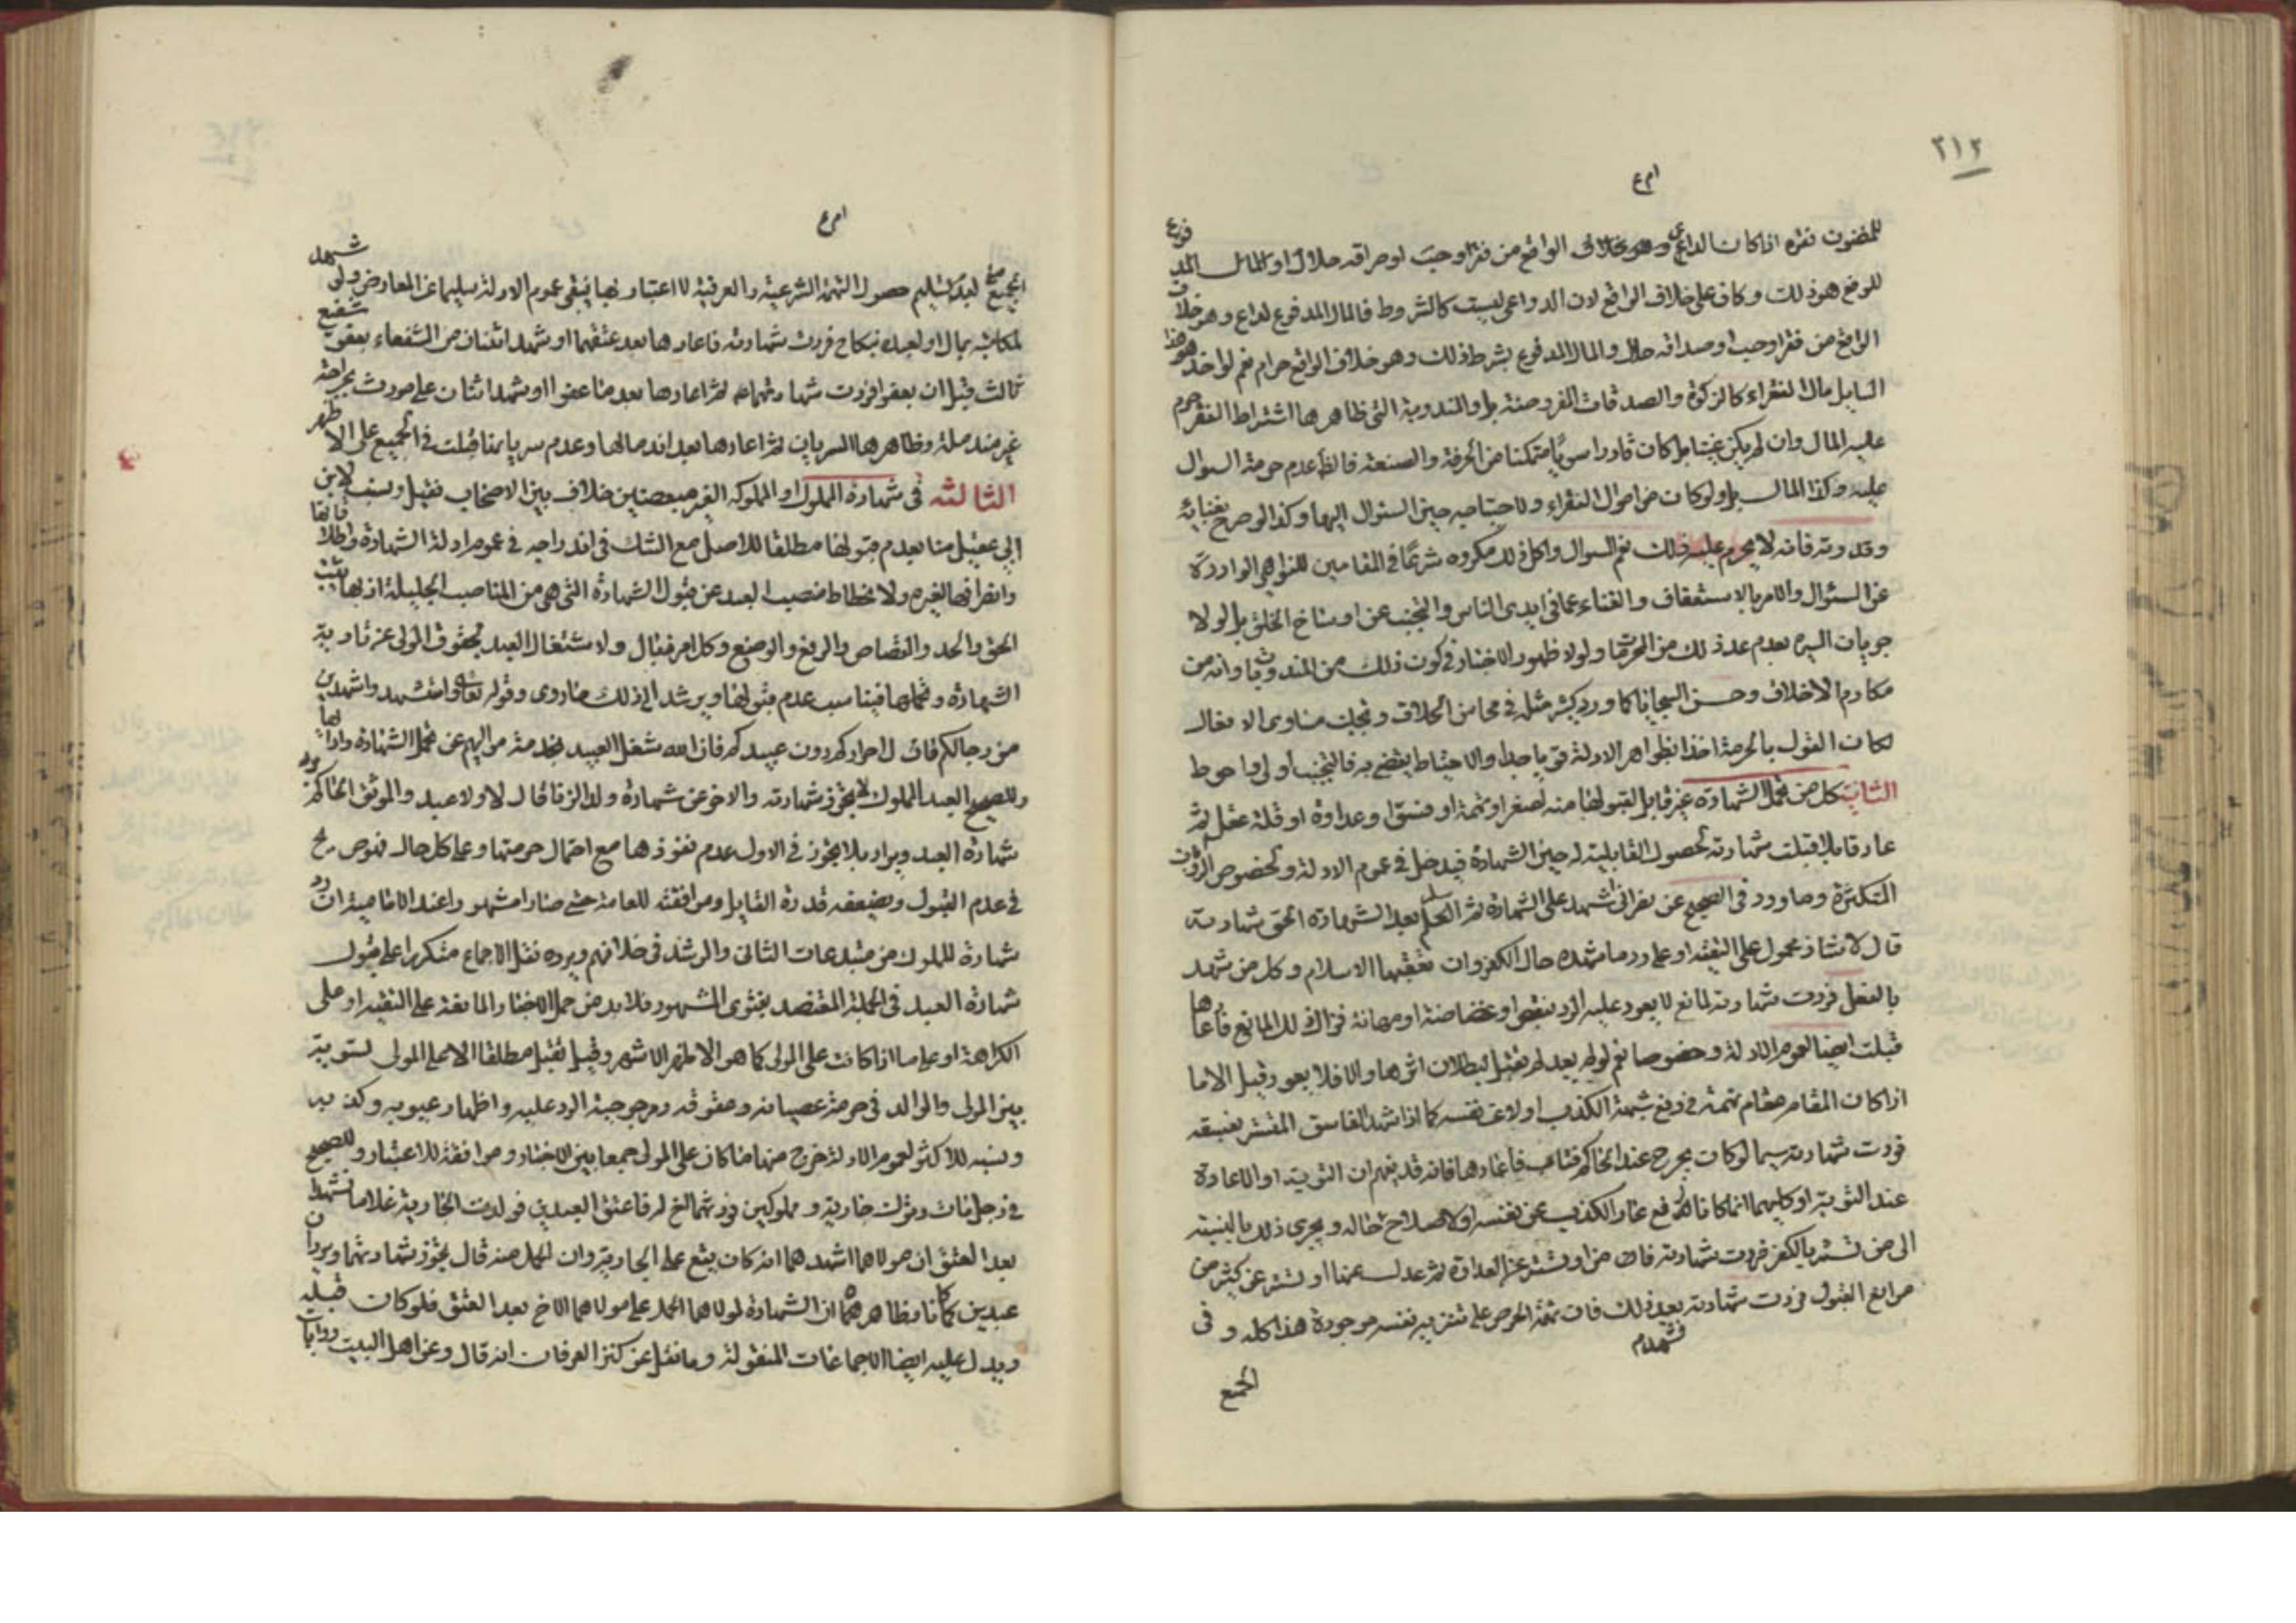 ٣١٢
للمضون فقره اذا كان الداعي وهو خلاف الواقع من فقر او حب او صداقه حلال او المال المد فوع
للوقع هو ذلك وكان على خلاف الواقع لان الدواعي ليست كالشروط فالمال المدفوع لداع وهو خلاف
الواقع من فقر او حب او صداقه حلال والمال المدفوع بشرط ذلك وهو خلاف الواقع حرام نعم لو اخذ هو هذا
السايل مال الفقراء كالزكوة والصدقات المفروضة بل والمندوبة التي ظاهرها اشتراط الفقر حرم
عليه المال وان لم يكن غنيا بل كان قادرا سويا متمكنا من الحرفة والصنعة فالظ عدم حرمة السوال
عليه وكذا المال بل ولو كان من اموال الفقراء ولاحتياجه حين السئوال اليها وكذا لو صرح بغنائه
وقدرته فانه لا يحرم عليه ذلك نعم السوال واكل ذلك مكروه شرعا في المقامين للنواهي الواردة
عن السئوال والامر بالاستعفاف والغناء عما في ايدي الناس والتجنب عن اوساخ الخلق بل لولا
جريان السيرة بعدم عد ذلك من المحرمات ولولا ظهور الاخبار في كون ذلك من المندوبات وانه من
مكارم الاخلاق وحسن السجايا كما ورد كثير مثله في محاسن اخلاق وتجنب مساوي الافعال
لكان القول بالحرمة اخذا بظواهر الادلة قويا جدا والاحتياط يقضي به فالتجنب اولى واحوط
الثانية كل من تحمل الشهادة غير قابل لقبولها منه لصغر او تهمة او فسق او عداوة او قلة عقل ثم
عاد قابلا قبلت شهادته لحصول القابلية له حين الشهادة فيدخل في عموم الادلة ولخصوص الروايات
المتكثرة وما ورد في الصحيح عن نصراني اشهد على الشهادة ثم اسلم بعد الشهادة اتجوز شهادته
قال لا شاذ محمول على التقية او على رد ما شهده حال الكفر وان تعقبها الاسلام وكل من شهد
بالفعل فردت شهادته لمانع لا يعود عليه الرد بنقص او غضاضة او مهانة فزال ذلك المانع فاعادها
قبلت ايضا لعموم الادلة وخصوصا نعم لو لم يعد لم تقبل لبطلان اثرها والا فلا يعود وقبل الا ما
اذا كان المقام مقام تهمة في دفع شبهة الكذب اولا عن نفسه كما اذا شهد الفاسق المتستر بفسقه
فردت شهادته سيما لو كان بجرح عند الحاكم فتاب فاعادها فانه قد يتهم ان التوبة او الاعادة
عند التوبة او كليهما انما كانا لرفع عار الكذب عن نفسه او لاصلاح حاله ويجري ذلك بالنسبة
الى من تستر بالكفر فردت شهادته فاسلم او تستر عن العداوة ثم عدل عنها او تستر عن كثير من
موانع القبول فردت شهادته بعد ذلك فان تهمة الحرص على تنزيه نفسه موجودة هذا كله و في
الجميع
الجميع لبعد تسليم حصول التهمة الشرعية والعرفية لا اعتبار بها فيبقى عموم الادلة سليما عن المعارض ولو شهد
لمكاتبه بمال او لعبده بنكاح فردت شهادته فاعادها بعد عتقهما او شهد اثنان من الشفعاء بعفو شفيع
ثالث قبل ان يعفوا فردت شهادتهما ثم اعادها بعد ما عفوا او شهد اثنان على مورث بجراحة
غير مندملة وظاهرها السريان ثم اعادها بعد اندمالها وعدم سريانها قبلت في الجميع على الاظهر
الثالثة في شهادة المملوك او المملوكه الغير مبعضين خلاف بين الاصحاب فقيل ونسب لابن
ابي عقيل منا بعدم قبولها مطلقا للاصل مع الشك في اندراجه في عموم ادلة الشهادة واطلاقاتها
وانصرافها لغيره ولانحطاط منصب العبد عن قبول الشهادة التي هي من المناصب الجليلة اذ بها يثبت
الحق والحد والقصاص والرفع والوضع وكل امر فيقال ولاشتغال العبد بحقوق المولى عن تادية
الشهادة وتحملها فيناسب عدم قبولها ويرشد الى ذلك ما روي وقوله تعالى واستشهدوا شهيدين
من رجالكم قال احراركم دون عبيدكم فان الله شغل العبيد بخدمة مواليهم عن تحمل الشهادة وادائها
وللصحيح العبد المملوك لا يجوز شهادته والاخر عن شهادة ولد الزنا قال لا ولا عبد والموثق الحاكم برد
شهادة العبد ويراد بلا يجوز في الاول عدم نفوذها مع احتمال حرمتها وعلى كل حال فهو صريح
في عدم القبول ويضعفه قدرة القايل وموافقته للعامة حتى صار مشهورا عند الامامية ان رد
شهادة المملوك من مبتدعات الثاني والرشد في خلافهم ويرده نقل الاجماع متكررا على قبول
شهادة العبد في الجملة المعتضد بفتوى المشهور فلا بد من حمل الاخبار المانعة على التقية او على
الكراهة او على ما اذا كانت على المولى كما هو الاظهر الاشهر وقيل تقبل مطلقا الا على المولى لتسوية
بين المولى والوالد في حرمة عصيانه وعقوقه وموجوبية الرد عليه واظهار عيوبه وكذبه
ونسبه للاكثر لعموم الادلة خرج منها ما كان على المولى جمعا بين الاخبار وموافقة للاعتبار وللصحيح
في رجل مات وترك جارية ومملوكين فورثهما اخ له فاعتق العبدين فولدت الجارية غلاما فشهدا
بعد العتق ان مولاهما اشهدهما انه كان يقع على الجارية وان الحمل منه قال تجوز شهادتهما ويردان
عبدين كما كانا وظاهرهما ان الشهادة لمولاهما الحمل على مولاهما الاخ بعد العتق فلو كان قبله
ويدل عليه ايضا الاجماعات المنقولة وما نقل عن كنز العرفان انه قال وعن اهل البيت روايات